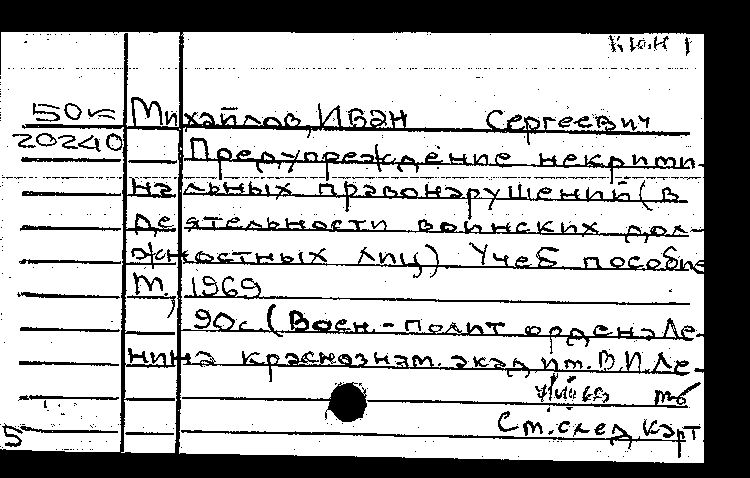 К Ю.Н 1
50к Михайлов, Иван Сергеевич
20240 Предупреждение некрими-
нальных правонарушений (в
деятельности воинских дол-
жностных лиц). Учеб пособие
М., 1969
90с. (Воен.-полит ордена Ле-
нина краснознам. акад им. В.И. Ле-
мб
См. след. карт
5